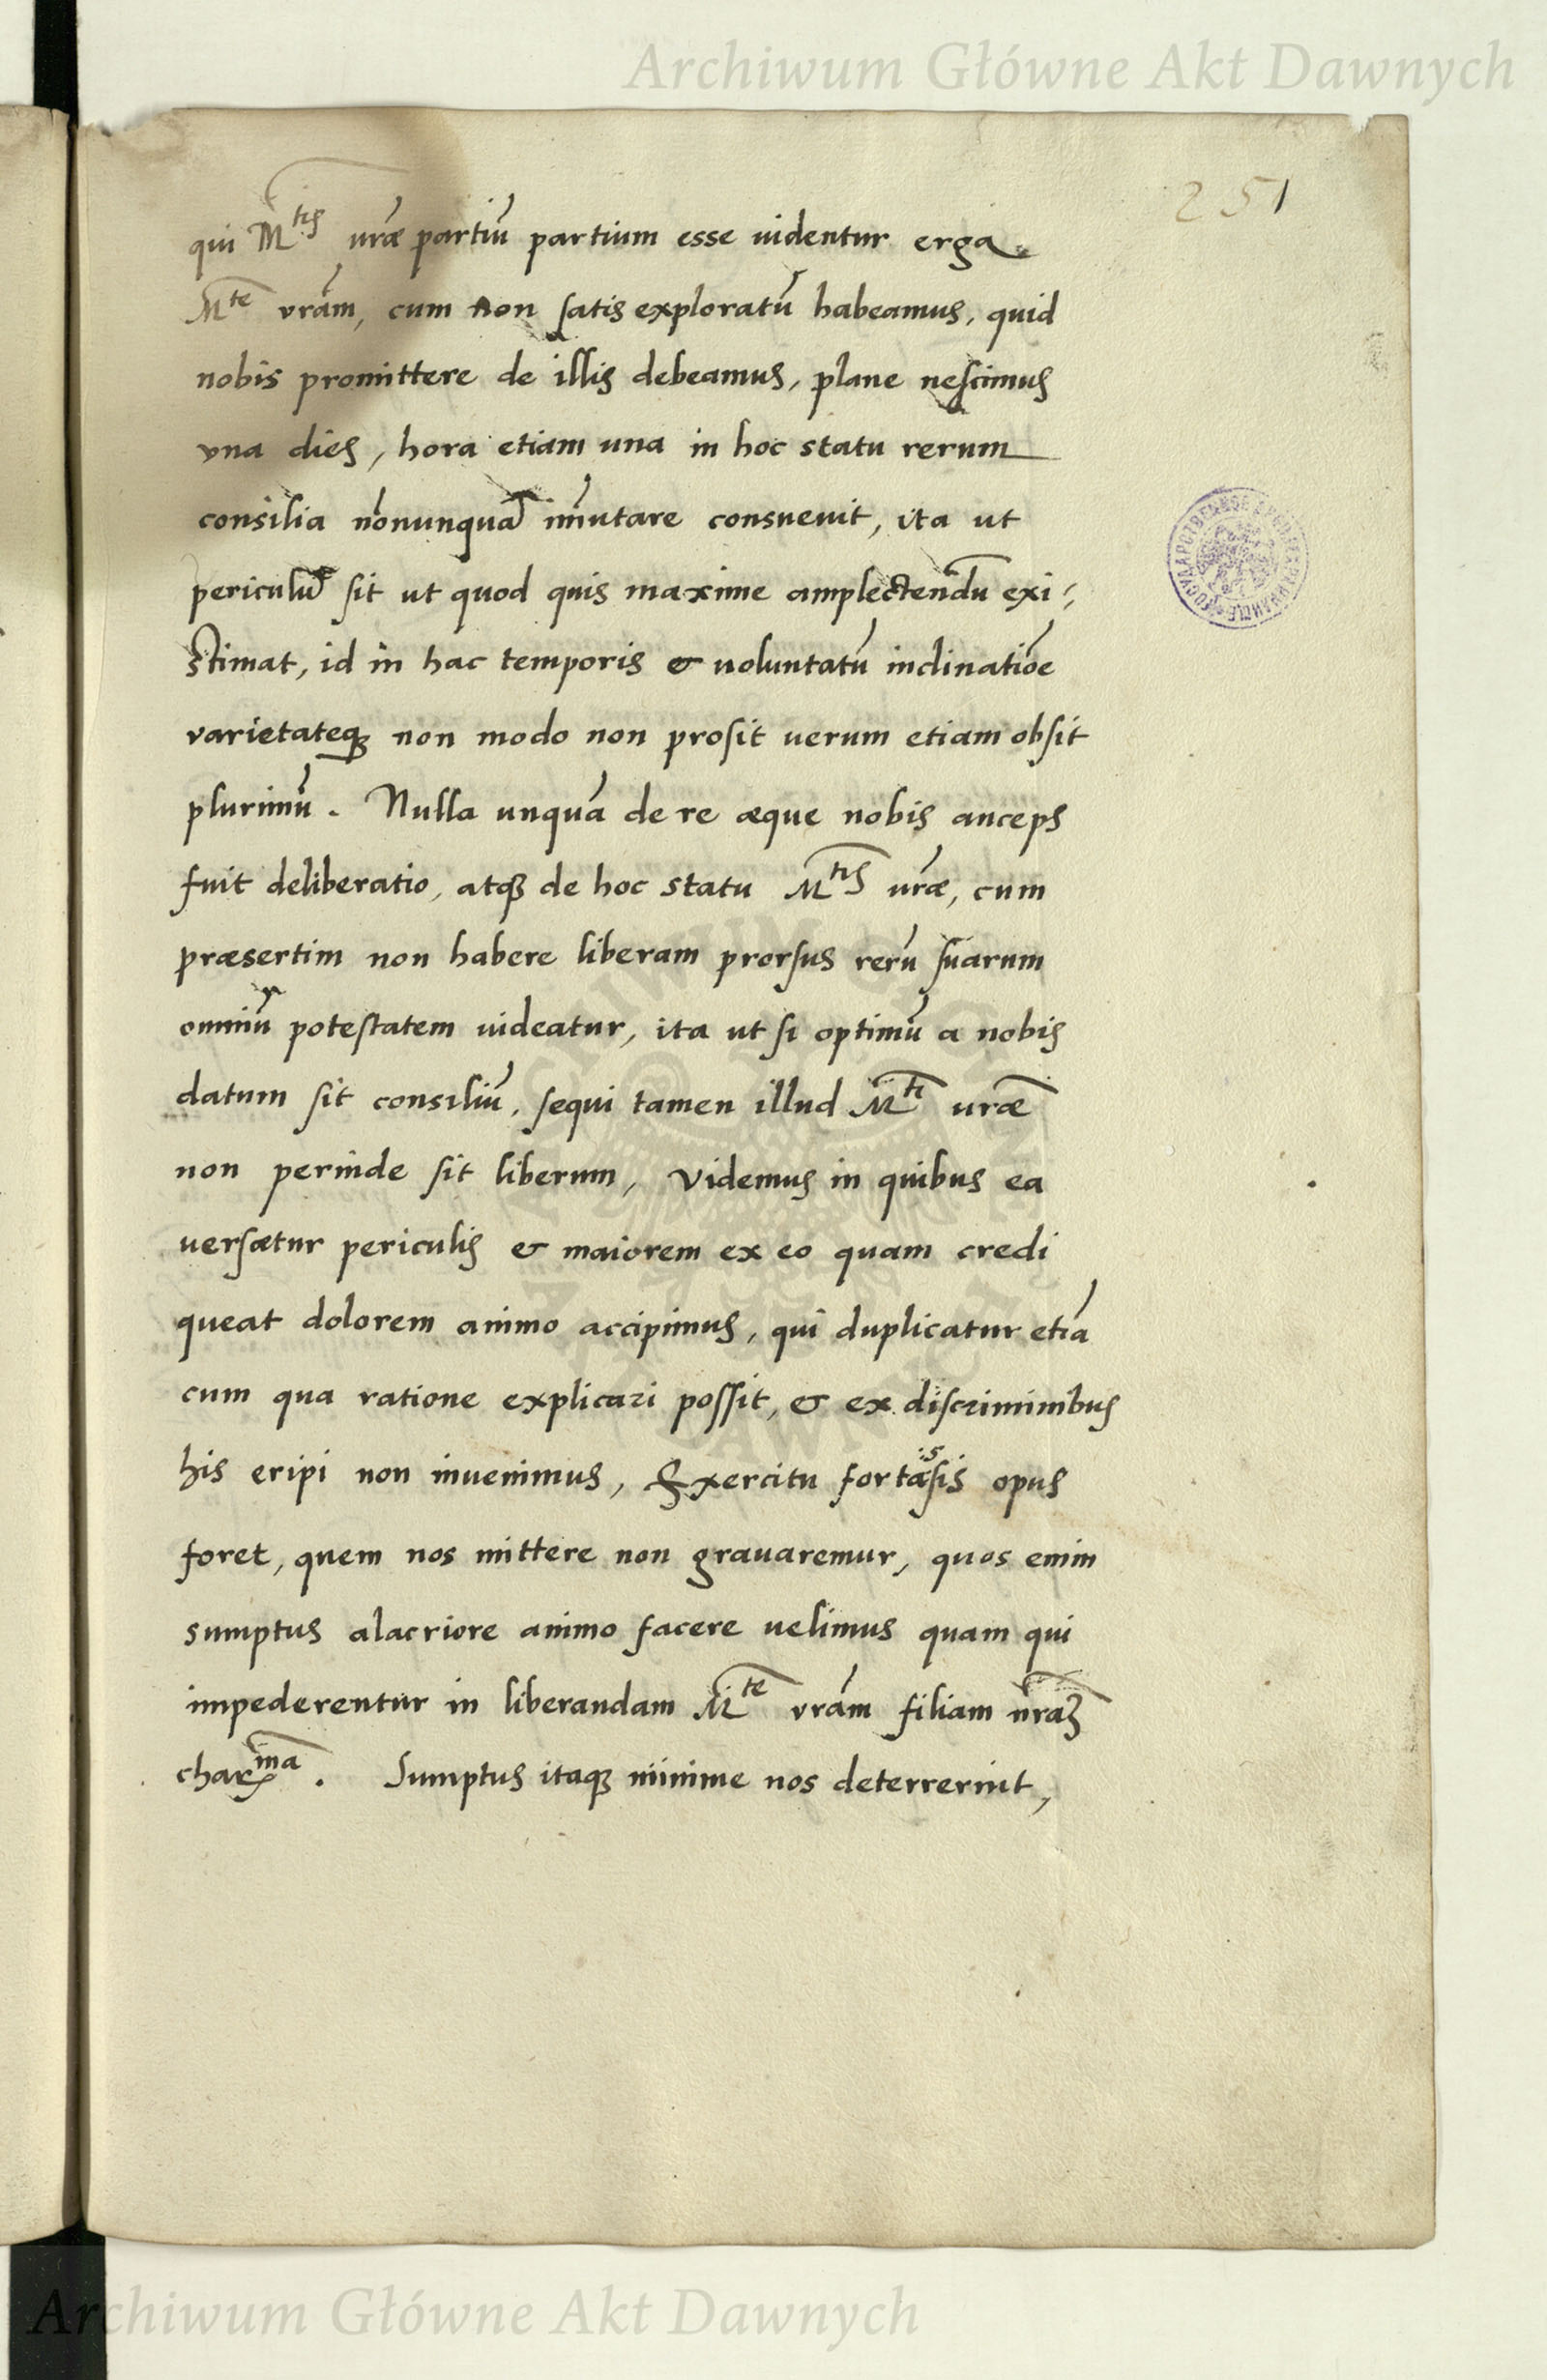 Archiwum Główne Akt Dawnych
251
qui M^tis vræ partiū partium esse uidentur erga
M^te vrām, cum non satis exploratū habeamus, quid
nobis promittere de illis debeamus, plane nescimus
vna dies, hora etiam una in hoc statu rerum
consilia nōnunquā im̄utare consueuit, ita ut
periculū sit ut quod quis maxime amplectendū exi-
stimat, id in hac temporis & uoluntatū inclinatiōe
varietateq; non modo non prosit uerum etiam obsit
plurimū. Nulla unquā de re æque nobis anceps
fuit deliberatio, atq; de hoc statu M^tis vræ, cum
præsertim non habere liberam prorsus rerū suarum
omniū potestatem uideatur, ita ut si optimū a nobis
datum sit consiliū, sequi tamen illud M^ti vræ
non perinde sit liberum, Videmus in quibus ea
uersætur periculis & maiorem ex eo quam credi
queat dolorem animo accipimus, qui duplicatur etiā
cum qua ratione explicari possit, & ex discriminibus
his eripi non inuenimus, Exercitu fortassis opus
foret, quem nos mittere non grauaremur, quos enim
sumptus alacriore animo facere uelimus quam qui
impederentur in liberandam M^te vrām filiam nrāz
char^ma. Sumptus itaq; minime nos deterrerint,
Archiwum Główne Akt Dawnych